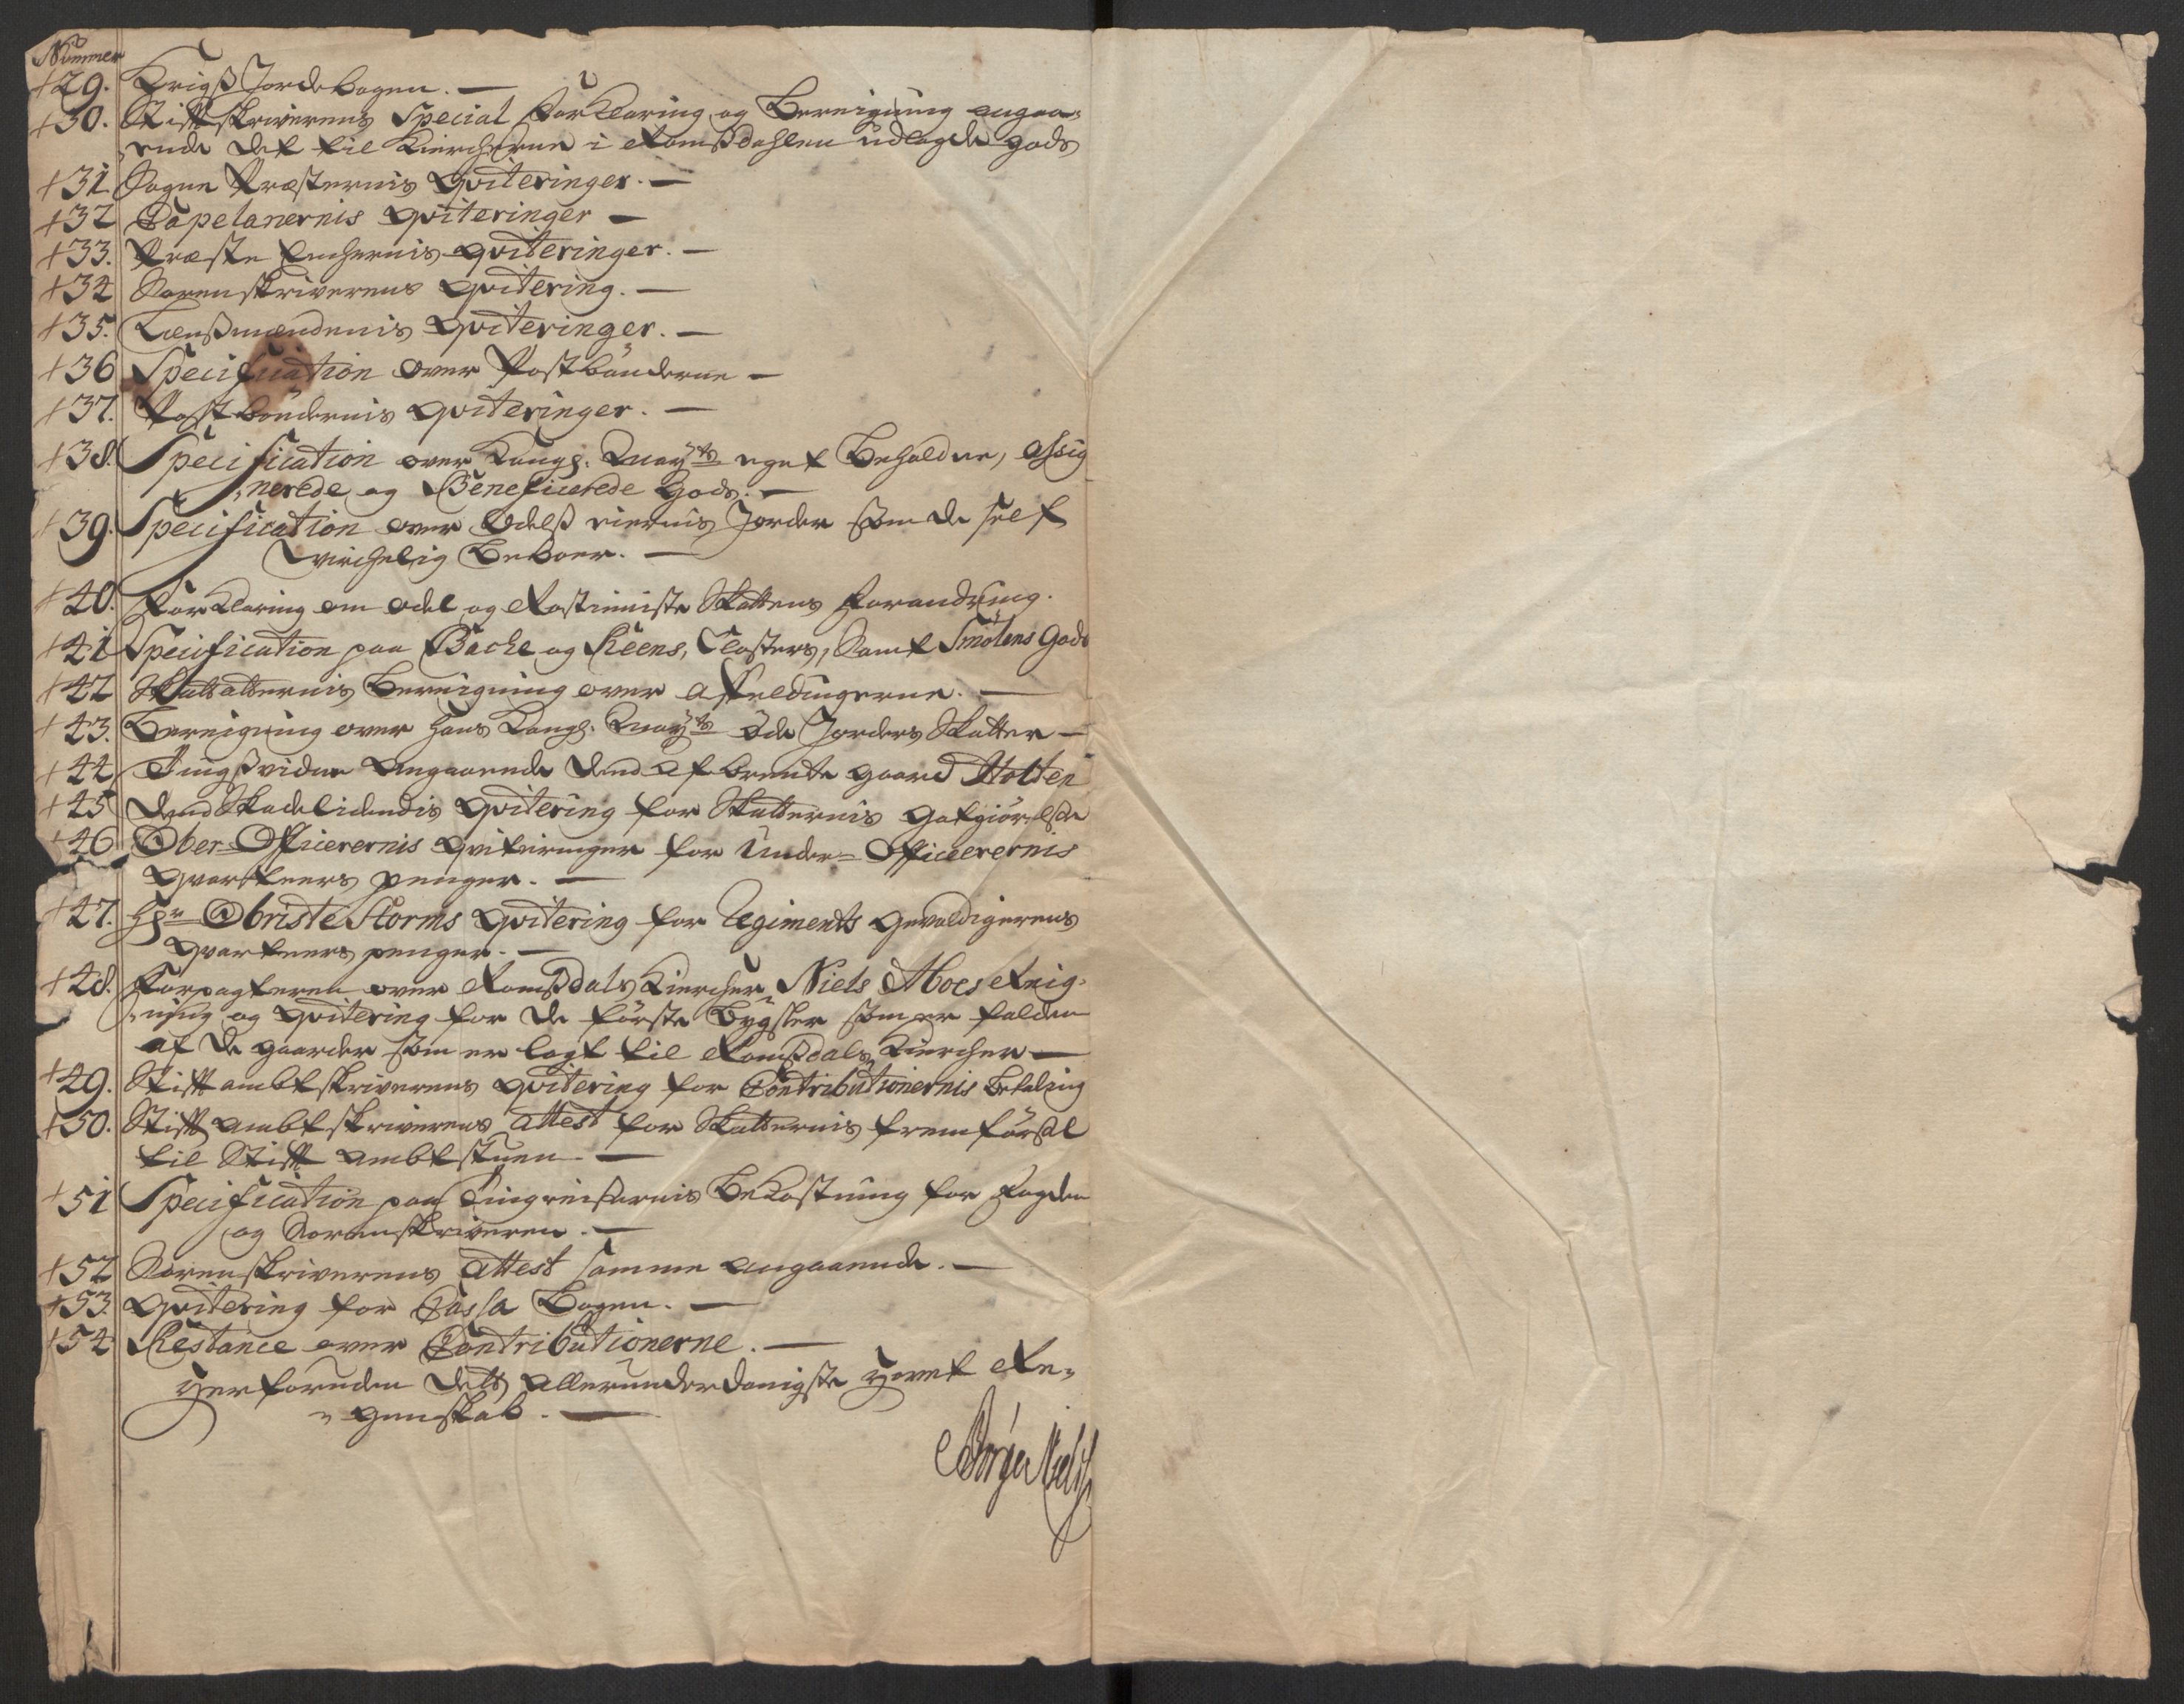 Nummer
+29. Krigs Jordebogen. —
+30. Stiftskriverens Special forklaring og Beregning angaa-
ende det til Kircherne i Romsdahlen udlagde gods
+31 Sogne Præsternis Qviteringer. —
+32 Capelanernis Qviteringer —
+33. Præste Enchernis qviteringer. —
+34 Sorenskriverens Qvitering. —
+35. Lensmændenis Qviteringer. —
+36 Specification over Postbønderne —
+37. Postbøndernis qviteringer. —
+38. Specification over Kongl. Mayts eget Beholdne, assig
nerede og Beneficerede gods. —
+39. Specification over Odels eiernis Jorder som de self
virchelig Beboer. —
+40. Forklaring om odel og Rostieniste Skattens forandring.
+41 Specification paa Bache og Reens, Closters, samt Smølens Gods
+42 Skatternis Beregning over affeldingerne. —
+43. Beregning over hans Kongl. Mayts øde Jorders Skatter —
+44 Tingsvidne angaaende dend afbrente gaard Holten
+45 Dend Skadelidendis qvitering for Skatternis godtgiørelse
+46 Ober-Officerernis qviteringer for Under-Officerernis
qvarteers penger. —
+47. Hr Obriste Storms qvitering for Regiments gevaldigerens
qvarteers penger. —
+48. Forpagteren over Romsdals Kircher Niels Moes Reig-
ning og qvitering for de første Bygsler som er falden
af de gaarder som er lagt til Romsdals Kircher —
+49. Stiftambtskriverens qvitering for Contributionernis Betaling
+50. Stiftambtskriverens attest for Skatternis fremførsel
til Stiftambtstuen. —
+51 Specification paa Tingreisernis Bekostning for Fogden
og Sorenskriveren. —
+52 Sorenskriverens attest samme angaaende. —
+53. Qvitering for Cassa Bogen. —
+54 Restance over Contributionerne. —
Herforuden dets allerunderdanigste Hovet Re-
genskab. —